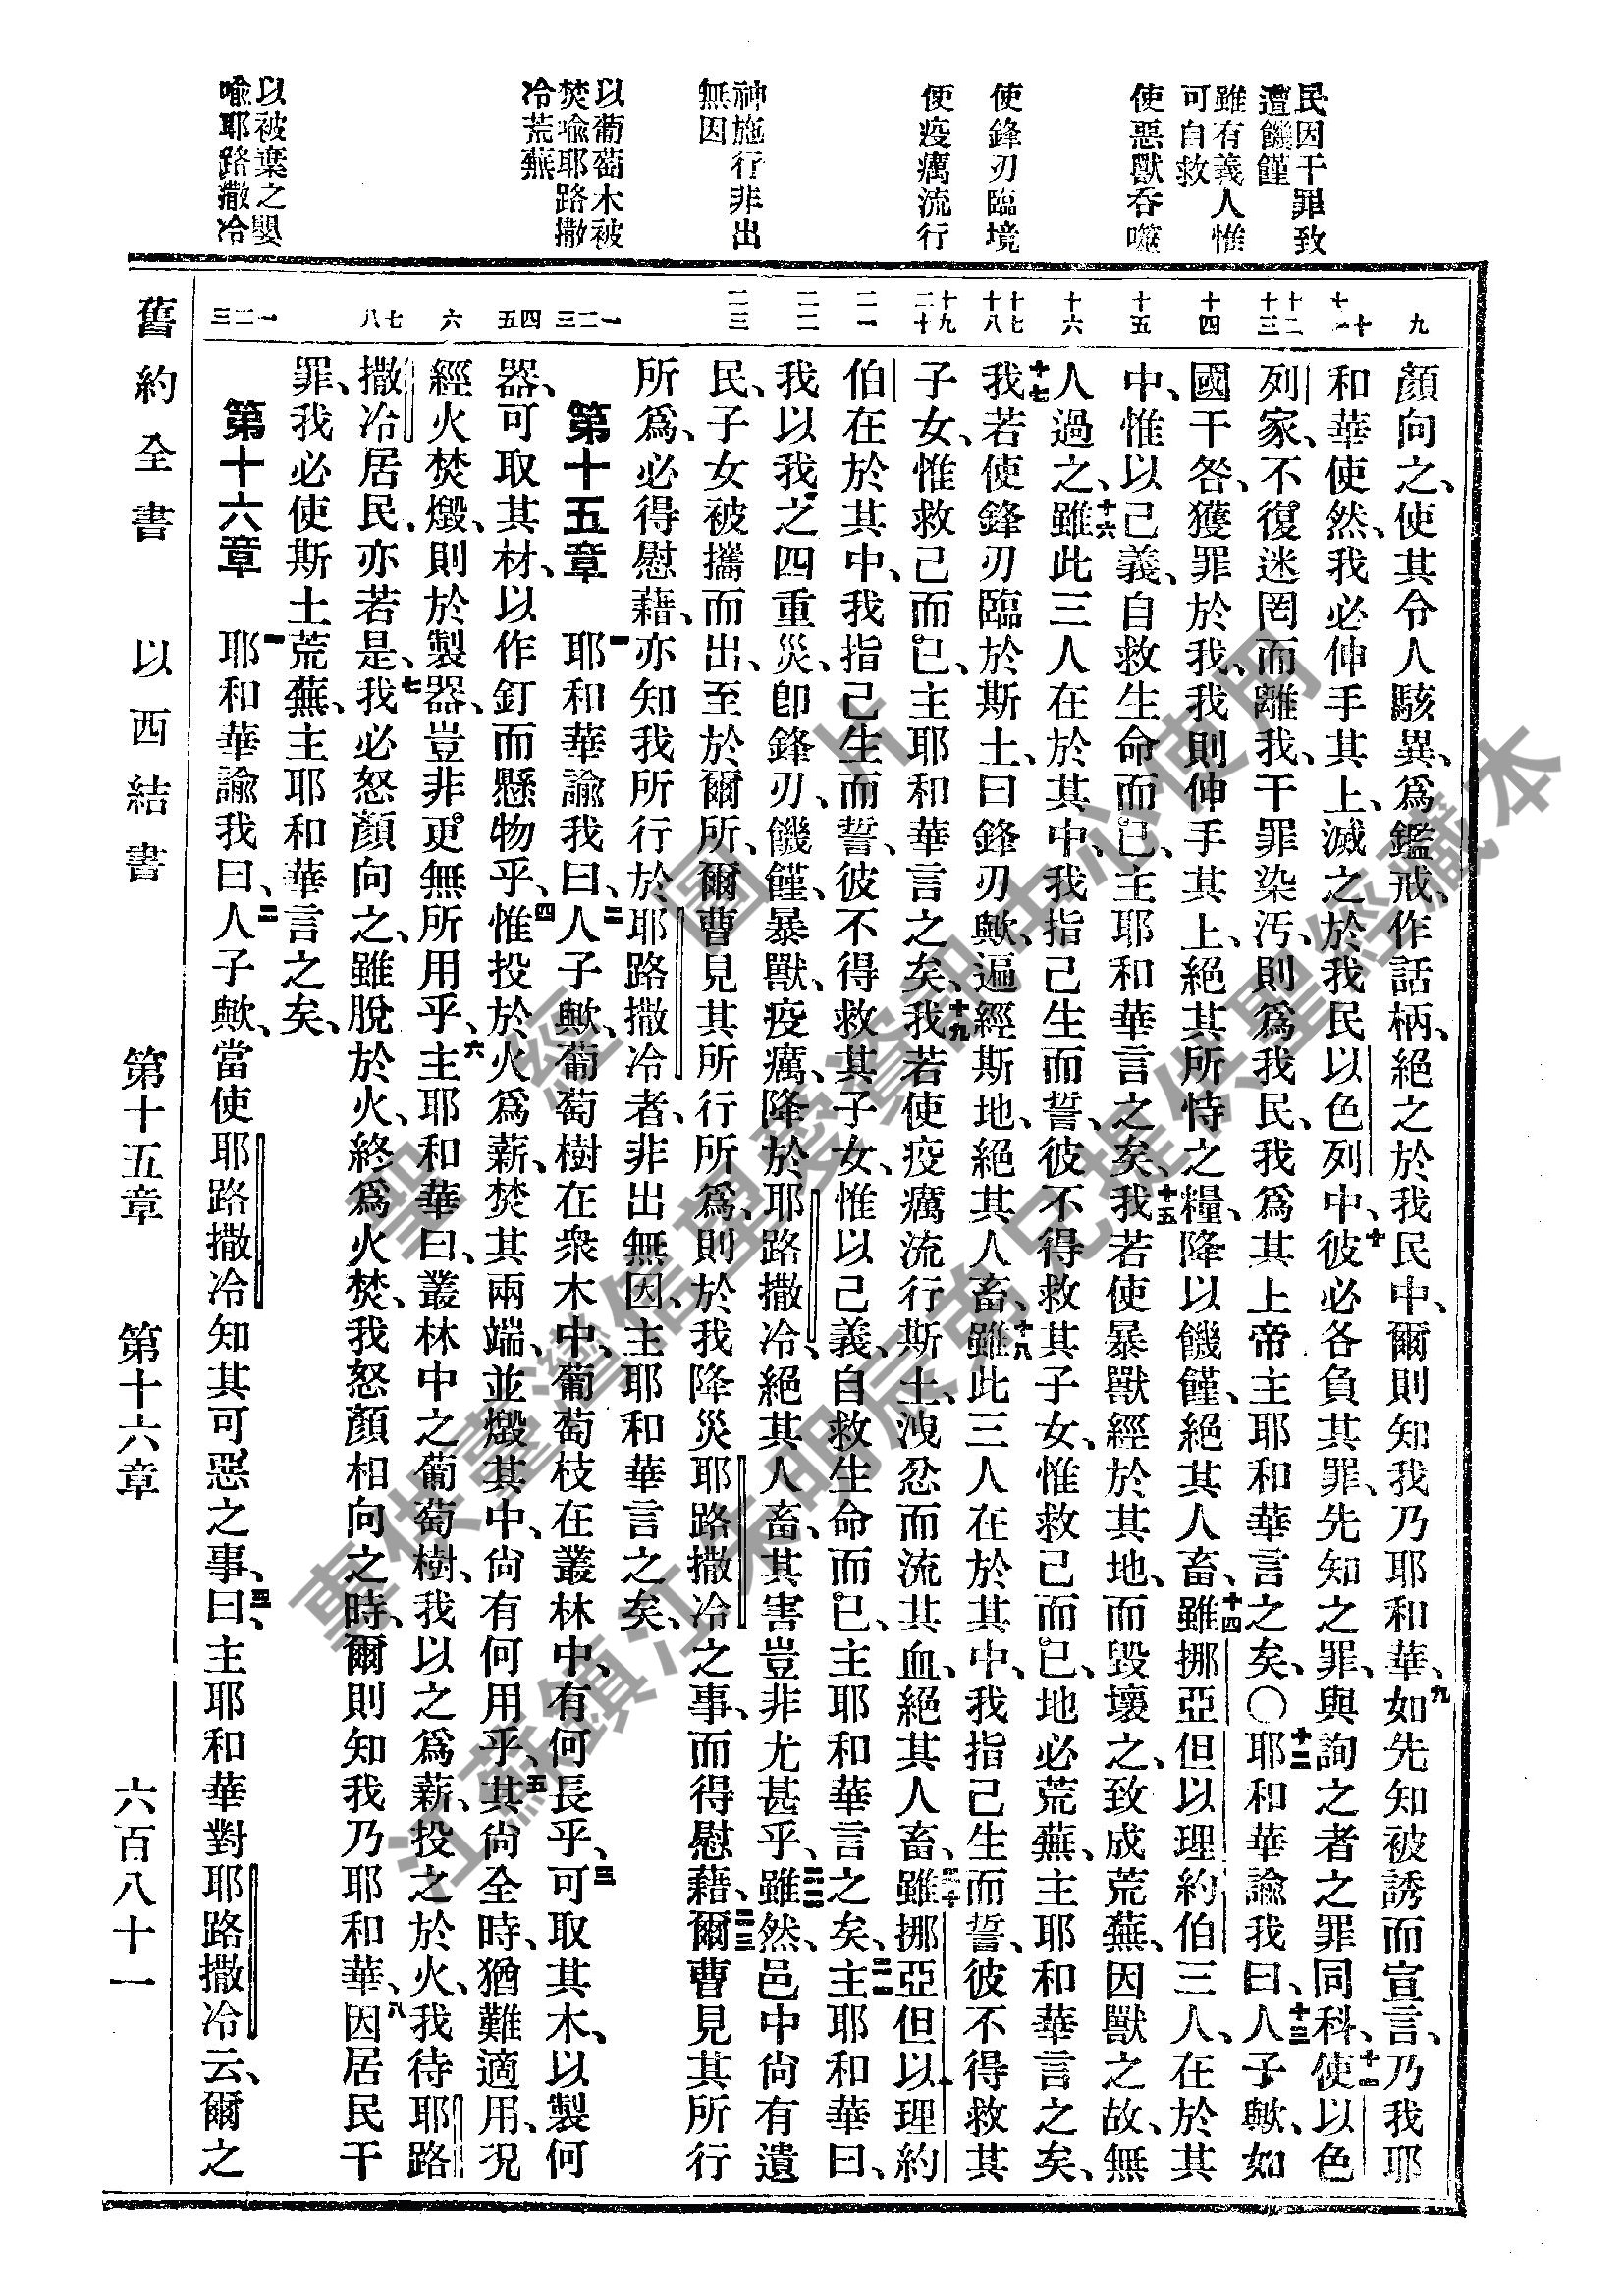 民因干罪致
遭饑饉
雖有義人惟
可自救
使惡獸吞噬
使鋒刃臨境
使疫癘流行
神施行非出
無因
以葡萄木被
焚喻耶路撒
冷荒蕪
以被棄之嬰
喻耶路撒冷
九
十
十一
十二
十三
十四
十五
十六
十七
十八
十九
二十
二一
二二
二三
一二三
四五
六
七八
一二三
顏向之、使其令人駭異、爲鑑戒、作話柄、絕之於我民中、爾則知我乃耶和華、九如先知被誘而宣言、乃我耶
和華使然、我必伸手其上、滅之於我民以色列中、十彼必各負其罪、先知之罪、與詢之者之罪同科、十一使以色
列家、不復迷罔而離我、干罪染污、則爲我民、我爲其上帝主耶和華言之矣、〇十二耶和華諭我曰、十三人子歟、如
國干咎、獲罪於我、我則伸手其上、絕其所恃之糧、降以饑饉、絕其人畜、十四雖挪亞但以理約伯三人、在於其
中、惟以己義、自救生命而已、主耶和華言之矣、十五我若使暴獸經於其地、而毀壞之、致成荒蕪、因獸之故、無
人過之、十六雖此三人在於其中、我指己生而誓、彼不得救其子女、惟救己而已、地必荒蕪、主耶和華言之矣、
十七我若使鋒刃臨於斯土、曰鋒刃歟、遍經斯地、絕其人畜、十八雖此三人在於其中、我指己生而誓、彼不得救其
子女、惟救己而已、主耶和華言之矣、十九我若使疫癘流行斯土、洩忿而流其血、絕其人畜、二十雖挪亞但以理約
伯在於其中、我指己生而誓、彼不得救其子女、惟以己義、自救生命而已、主耶和華言之矣、二一主耶和華曰、
我以我之四重災、卽鋒刃、饑饉、暴獸、疫癘、降於耶路撒冷、絕其人畜、其害豈非尤甚乎、二二雖然、邑中尙有遺
民、子女被攜而出、至於爾所、爾曹見其所行所爲、則於我降災耶路撒冷之事、而得慰藉、二三爾曹見其所行
所爲、必得慰藉、亦知我所行於耶路撒冷者、非出無因、主耶和華言之矣、
第十五章 一耶和華諭我曰、二人子歟、葡萄樹在衆木中、葡萄枝在叢林中、有何長乎、三可取其木、以製何
器、可取其材、以作釘而懸物乎、四惟投於火爲薪、焚其兩端、並燬其中、尙有何用乎、五其尙全時、猶難適用、況
經火焚燬、則於製器、豈非更無所用乎、六主耶和華曰、叢林中之葡萄樹、我以之爲薪、投之於火、我待耶路
撒冷居民、亦若是、七我必怒顏向之、雖脫於火、終爲火焚、我怒顏相向之時、爾則知我乃耶和華、八因居民干
罪、我必使斯土荒蕪、主耶和華言之矣、
第十六章 一耶和華諭我曰、二人子歟、當使耶路撒冷知其可惡之事、三曰、主耶和華對耶路撒冷云、爾之
舊約全書 以西結書 第十五章 第十六章 六百八十一
聖經圖片
專供臺灣信望愛資訊中心使用
江蘇鎮江朱明辰弟兄提供聖經藏本